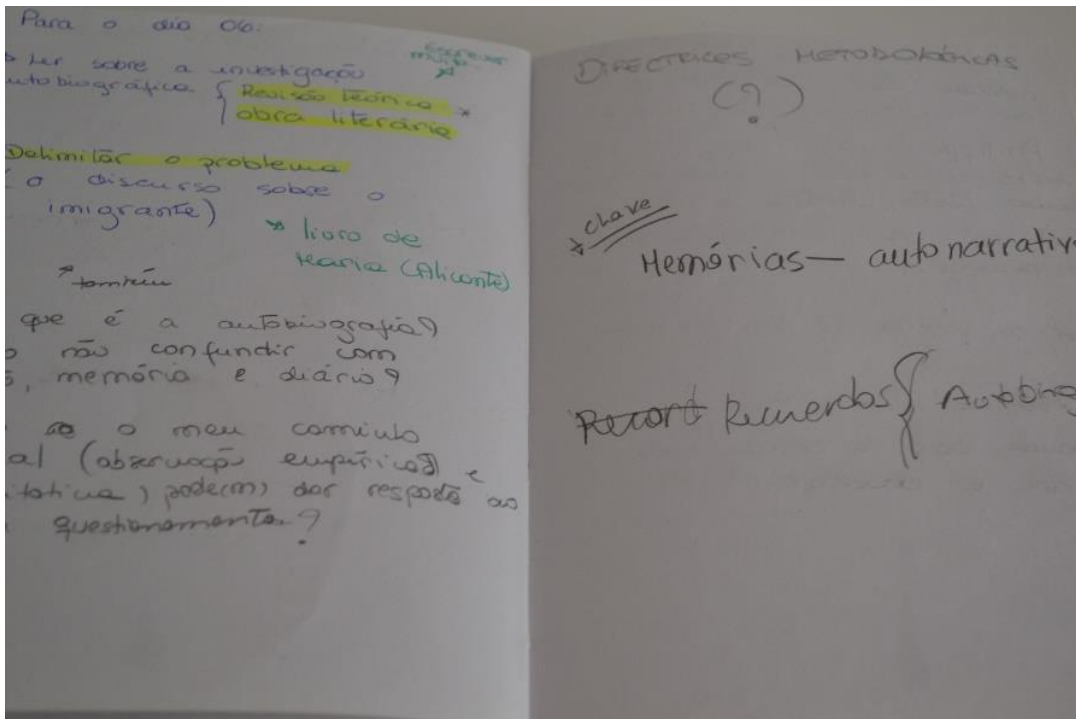 Para o dia 06:
ler sobre a investigação
utobiográfica { Revisão teórica *
obra literária
Escrever
muito
Delimitar o problema
o discurso sobre o
imigrante)
* livro de
Maria (Alicante)
* também
que é a autobiografia?
não confundir com
, memória e diário?
o meu caminho
al (observação empírica) e
itativa) pode(m) dar resposta ao
questionamento?
DIRECTRICES METODOLÓGICAS
(?)
* chave
Memórias — autonarrativ
Record Recuerdos { Autobiog